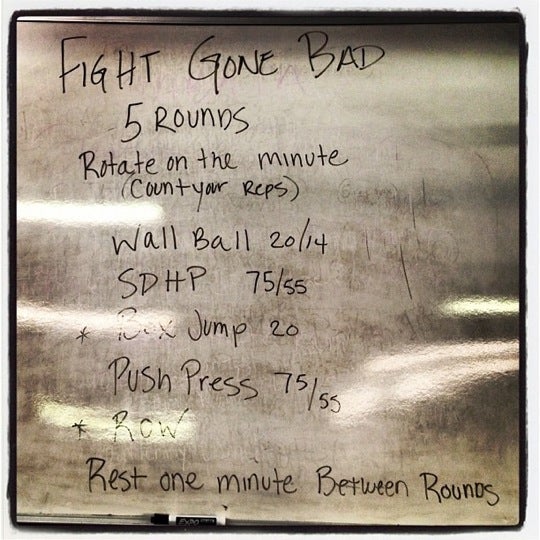 FIGHT GONE BAD
5 ROUNDS
Rotate on the minute
(Count your Reps)
Wall Ball 20/14
SDHP 75/55
* Box Jump 20
Push Press 75/55
* Row
Rest one minute Between Rounds
EXPO